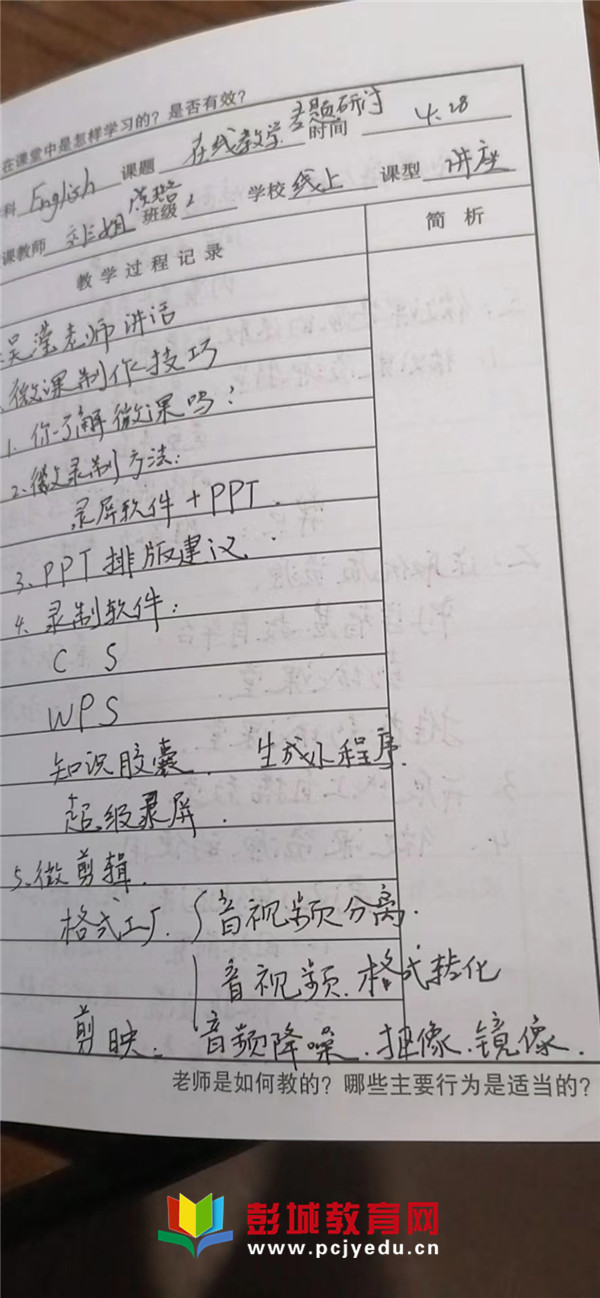 在课堂中是怎样学习的？是否有效？
科 English 课题 在线教学专题研讨 时间 4.28
课教师 班级 学校 线上 课型 讲座
教学过程记录 简析
吴滢老师讲话
微课制作技巧
1. 你了解微课吗？
2. 微录制方法：
录屏软件 + PPT.
3. PPT 排版建议.
4. 录制软件：
C S
WPS
知识胶囊. 生成小程序.
超级录屏.
5. 微剪辑.
格式工厂. { 音视频分离.
音视频.格式转化
剪映. 音频降噪.抠像.镜像.
老师是如何教的？哪些主要行为是适当的？
彭城教育网
www.pcjyedu.cn